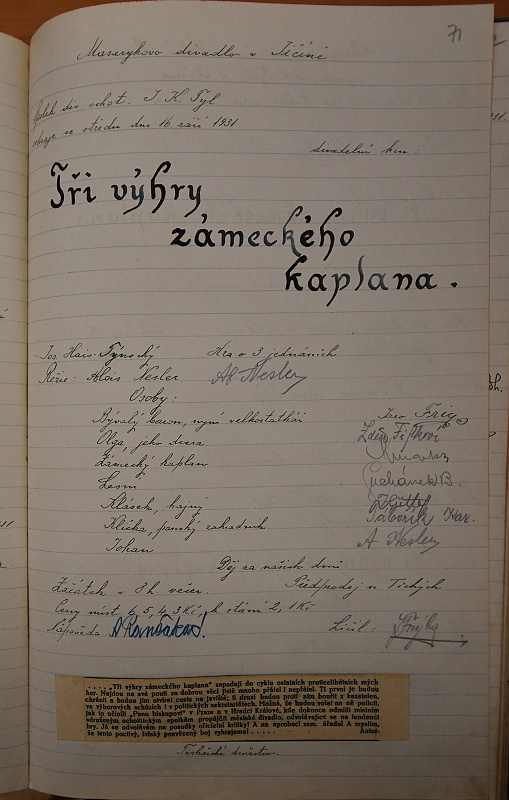 71
Masarykovo divadlo v Jičíně
div. ochot. J. K. Tyl
ve středu dne 16. září 1931
divadelní hru:
Tři výhry
zámeckého
kaplana.
Jos. Hais-Týnecký Hra o 3 jednáních
Režie: Alois Nesler Al Nesler
Osoby:
Bývalý baron, nyní velkostatkář
Olga, jeho dcera
Zámecký kaplan
Klásek, hajný
Klička, panský zahradník Táborík Kar.
Johan A Nesler
Děj za našich dnů
Začátek v 8 h. večer. Předprodej u Tichých
Ceny míst 6, 5, 4, 3 Kč, k stání 2, 1 Kč
Nápověda Líčil:
. . . . . „Tři výhry zámeckého kaplana“ zapadají do cyklu ostatních proticelibátních mých
her. Najdou na své pouti za dobrou věcí jistě mnoho přátel i nepřátel. Ti první je budou
chrániti a budou jim otvírati cestu na jeviště; ti druzí budou proti nim bouřit z kazatelen,
ve výborových schůzích i v politických sekretariátech. Možná, že budou volat na ně policii,
jak to učinili „Panu biskupovi“ v Praze a v Hradci Králové, kde dokonce odmítli místním
sdruženým ochotnickým spolkům propůjčit městské divadlo, odvolávajíce se na tendenci
hry. Já se odvolávám na posudky oficielní kritiky! A na aprobaci zem. úřadu! A myslím,
že tento poctivý, lidsky posvěcený boj vyhrajeme! . . . . . Autor.